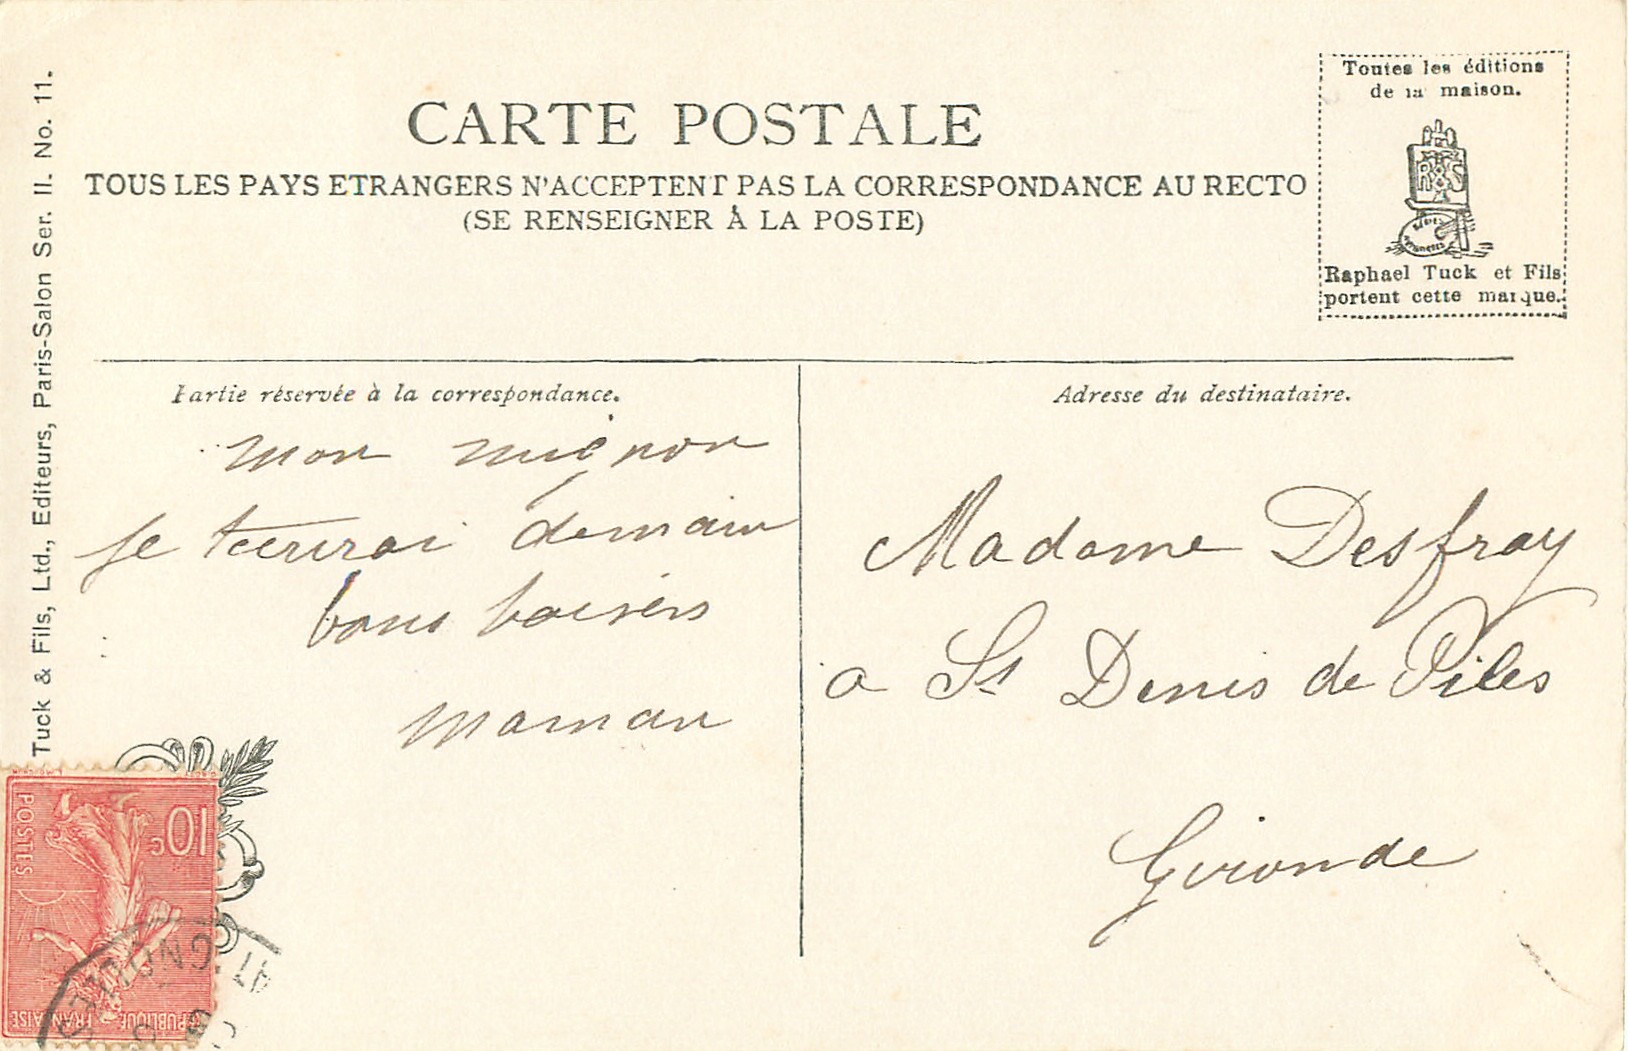 CARTE POSTALE
TOUS LES PAYS ETRANGERS N'ACCEPTENT PAS LA CORRESPONDANCE AU RECTO
(SE RENSEIGNER À LA POSTE)
Toutes les éditions
de la maison.
Raphael Tuck et Fils
portent cette marque.
Tuck & Fils, Ltd., Editeurs, Paris-Salon Ser. II. No. 11.
Partie réservée à la correspondance.
mon mignon
je tecrirai demain
bons baisers
maman
Adresse du destinataire.
Madame Desfray
a St Denis de Piles
Gironde
10 c
POSTES
REPUBLIQUE FRANÇAISE